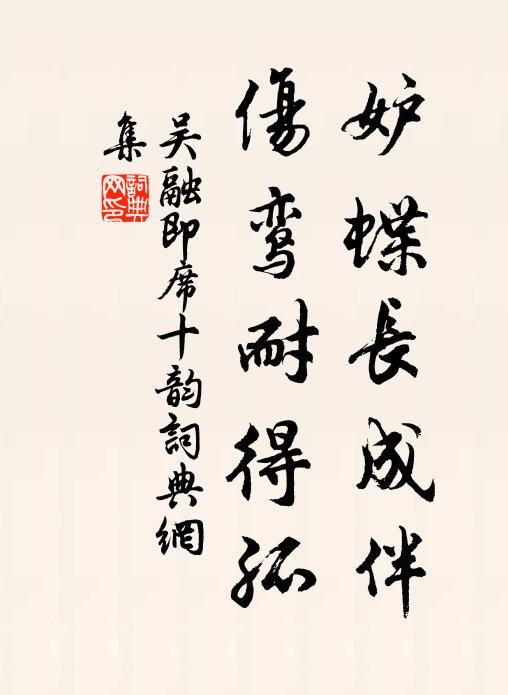 妒蝶長成伴
傷鸾耐得孤
吴融即席十韵詞典網
集
詞典
网印